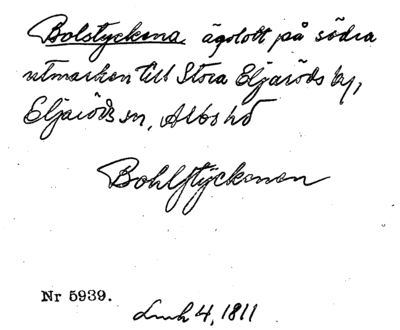 Bolstyckena ägolott på södra
utmarken till Stora Eljaröds by,
Eljaröds sn, Albo hd
Bohlstyckenen
Nr 5939.
4, 1811